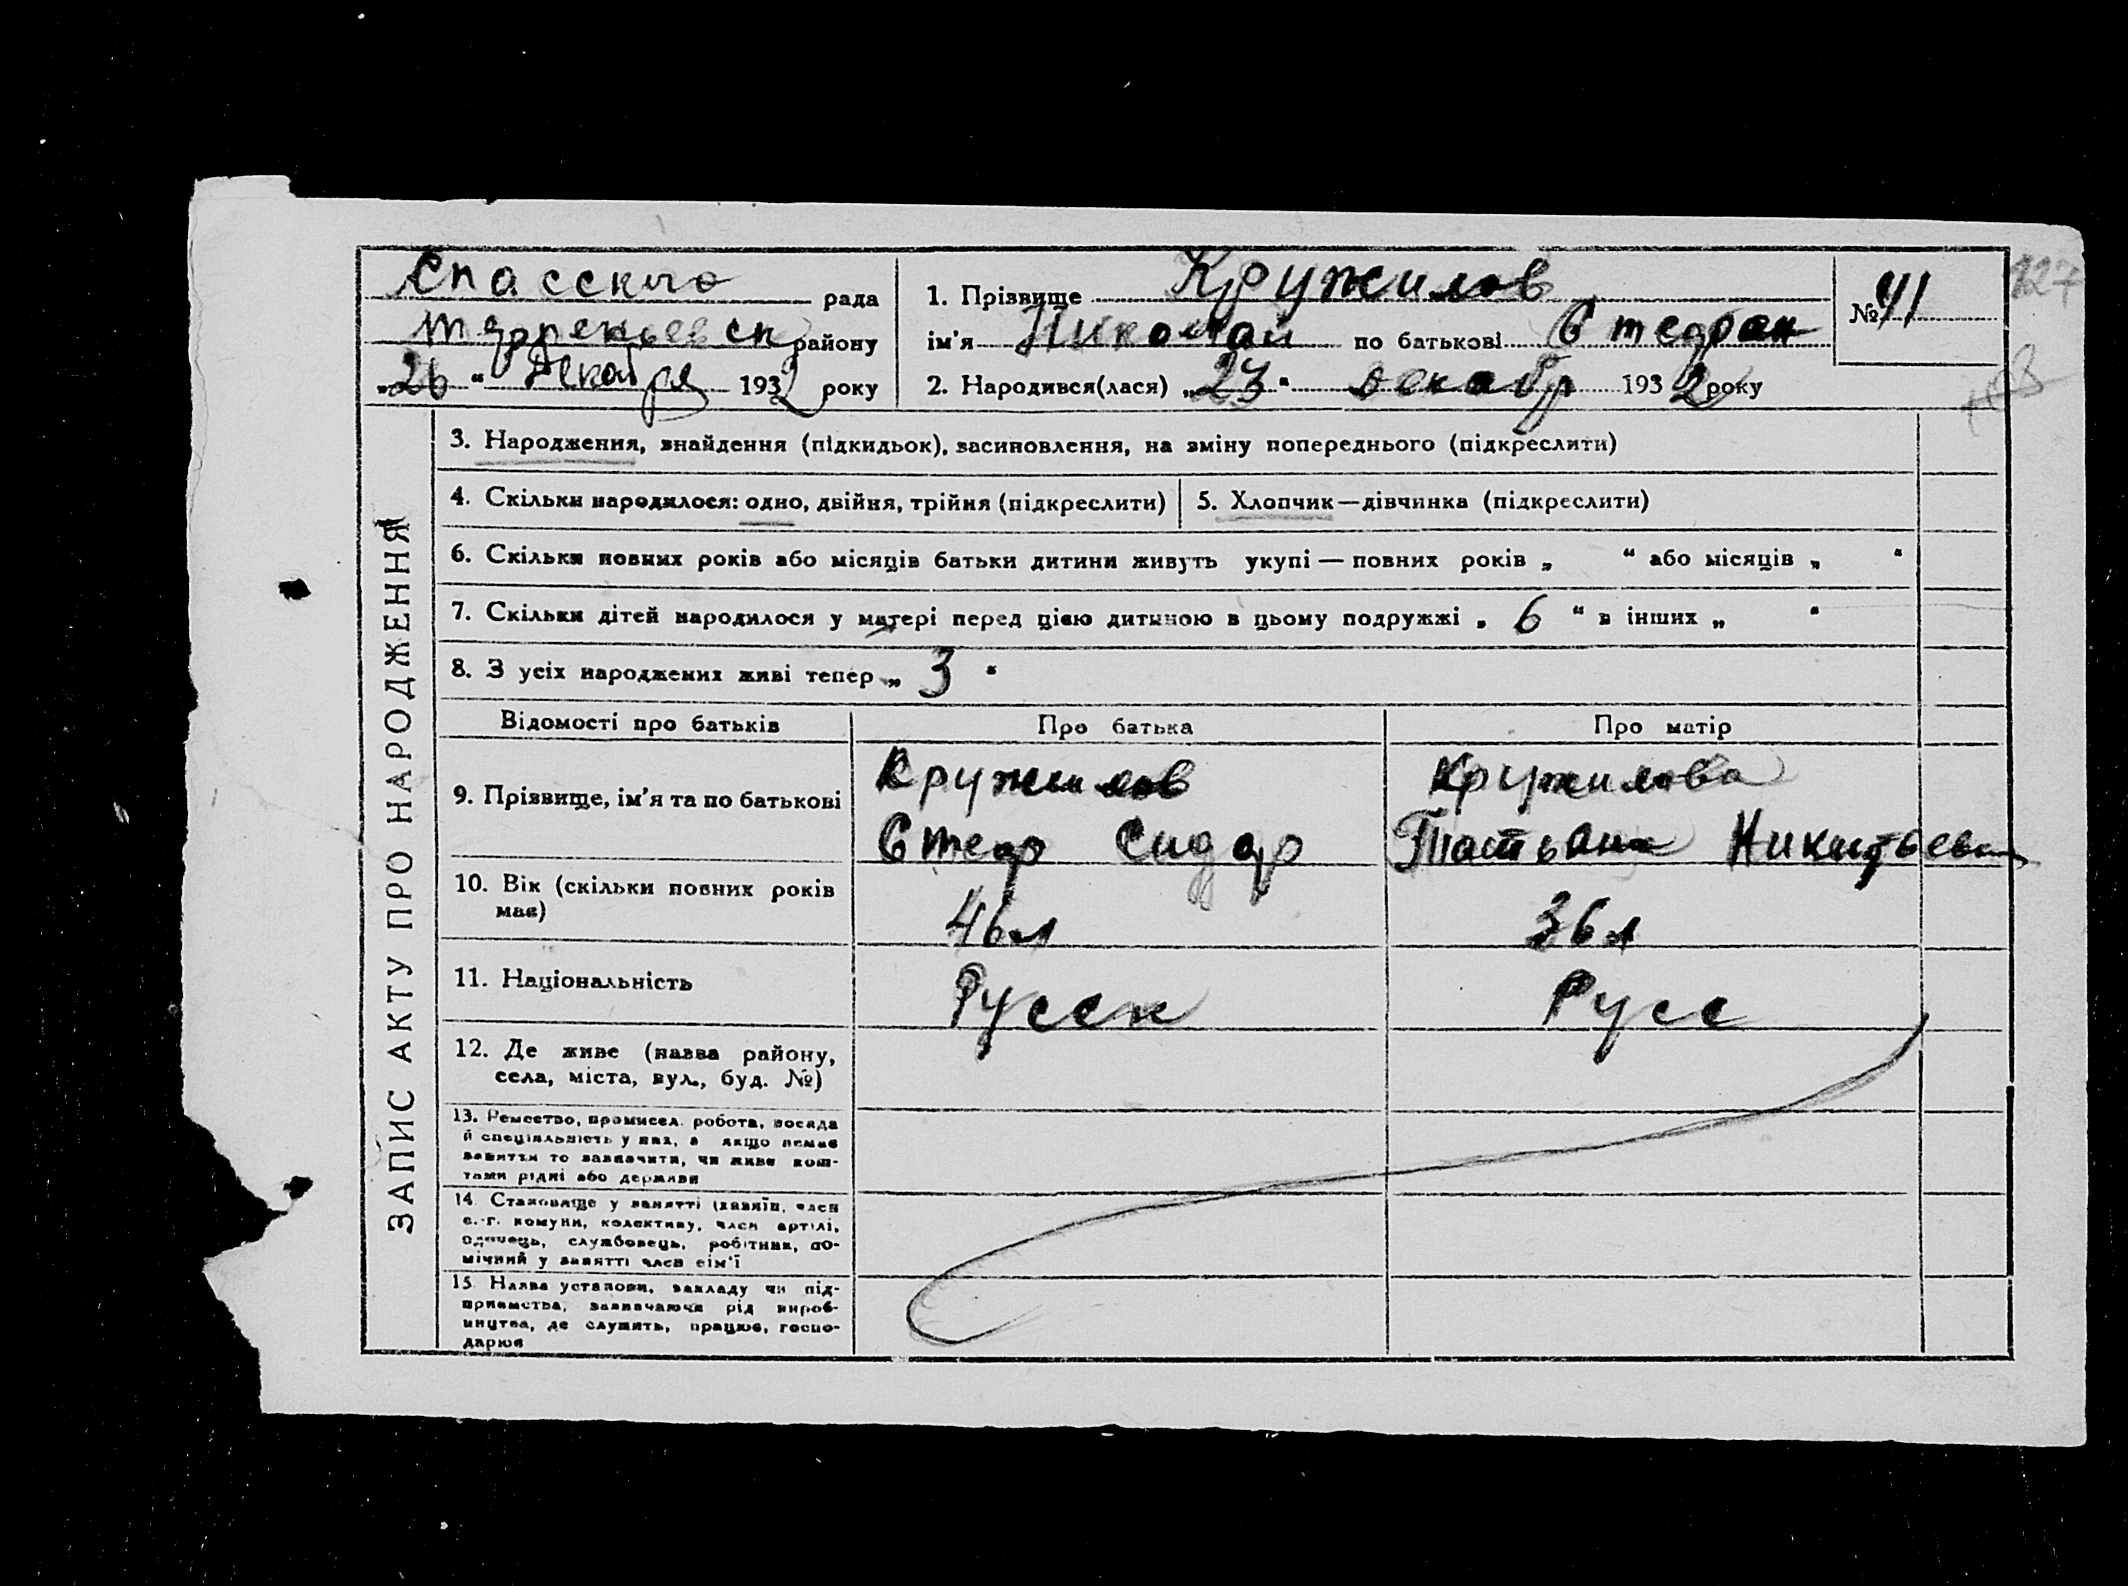 Спасского рада
району
„26“ Декабря 1932 року
1. Прізвище Кружилов
ім’я Николай по батькові Стефан
2. Народився(лася) „23“ декабр 1932 року
№ 41
127
ЗАПИС АКТУ ПРО НАРОДЖЕННЯ
3. Народження, знайдення (підкидьок), засиновлення, на зміну попереднього (підкреслити)
4. Скільки народилося: одно, двійня, трійня (підкреслити)
5. Хлопчик—дівчинка (підкреслити)
6. Скільки повних років або місяців батьки дитини живуть укупі — повних років „ “ або місяців „ “
7. Скільки дітей народилося у матері перед цією дитиною в цьому подружжі „ 6 “ в інших „ “
8. З усіх народжених живі тепер „ 3 “
Відомості про батьків
Про батька
Про матір
9. Прізвище, ім’я та по батькові
Кружилов
Стеф Сидор
Кружилова
Татьяна Никитьевн
10. Вік (скільки повних років
має)
46л
36л
11. Національність
Русск
Русс
12. Де живе (назва району,
села, міста, вул., буд. №)
13. Ремество, промисел, робота, посада
й спеціяльність у них, а якщо немає
заняття то зазначити, чи живе кош-
тами рідні або держави
14. Становище у занятті (хазяїн, член
с.-г. комуни, колективу, член артілі,
одинець, службовець, робітник, по-
мічний у занятті член сім’ї
15. Назва установи, закладу чи під-
приємства, зазначаючи рід вироб-
ництва, де служить, працює, госпо-
дарює